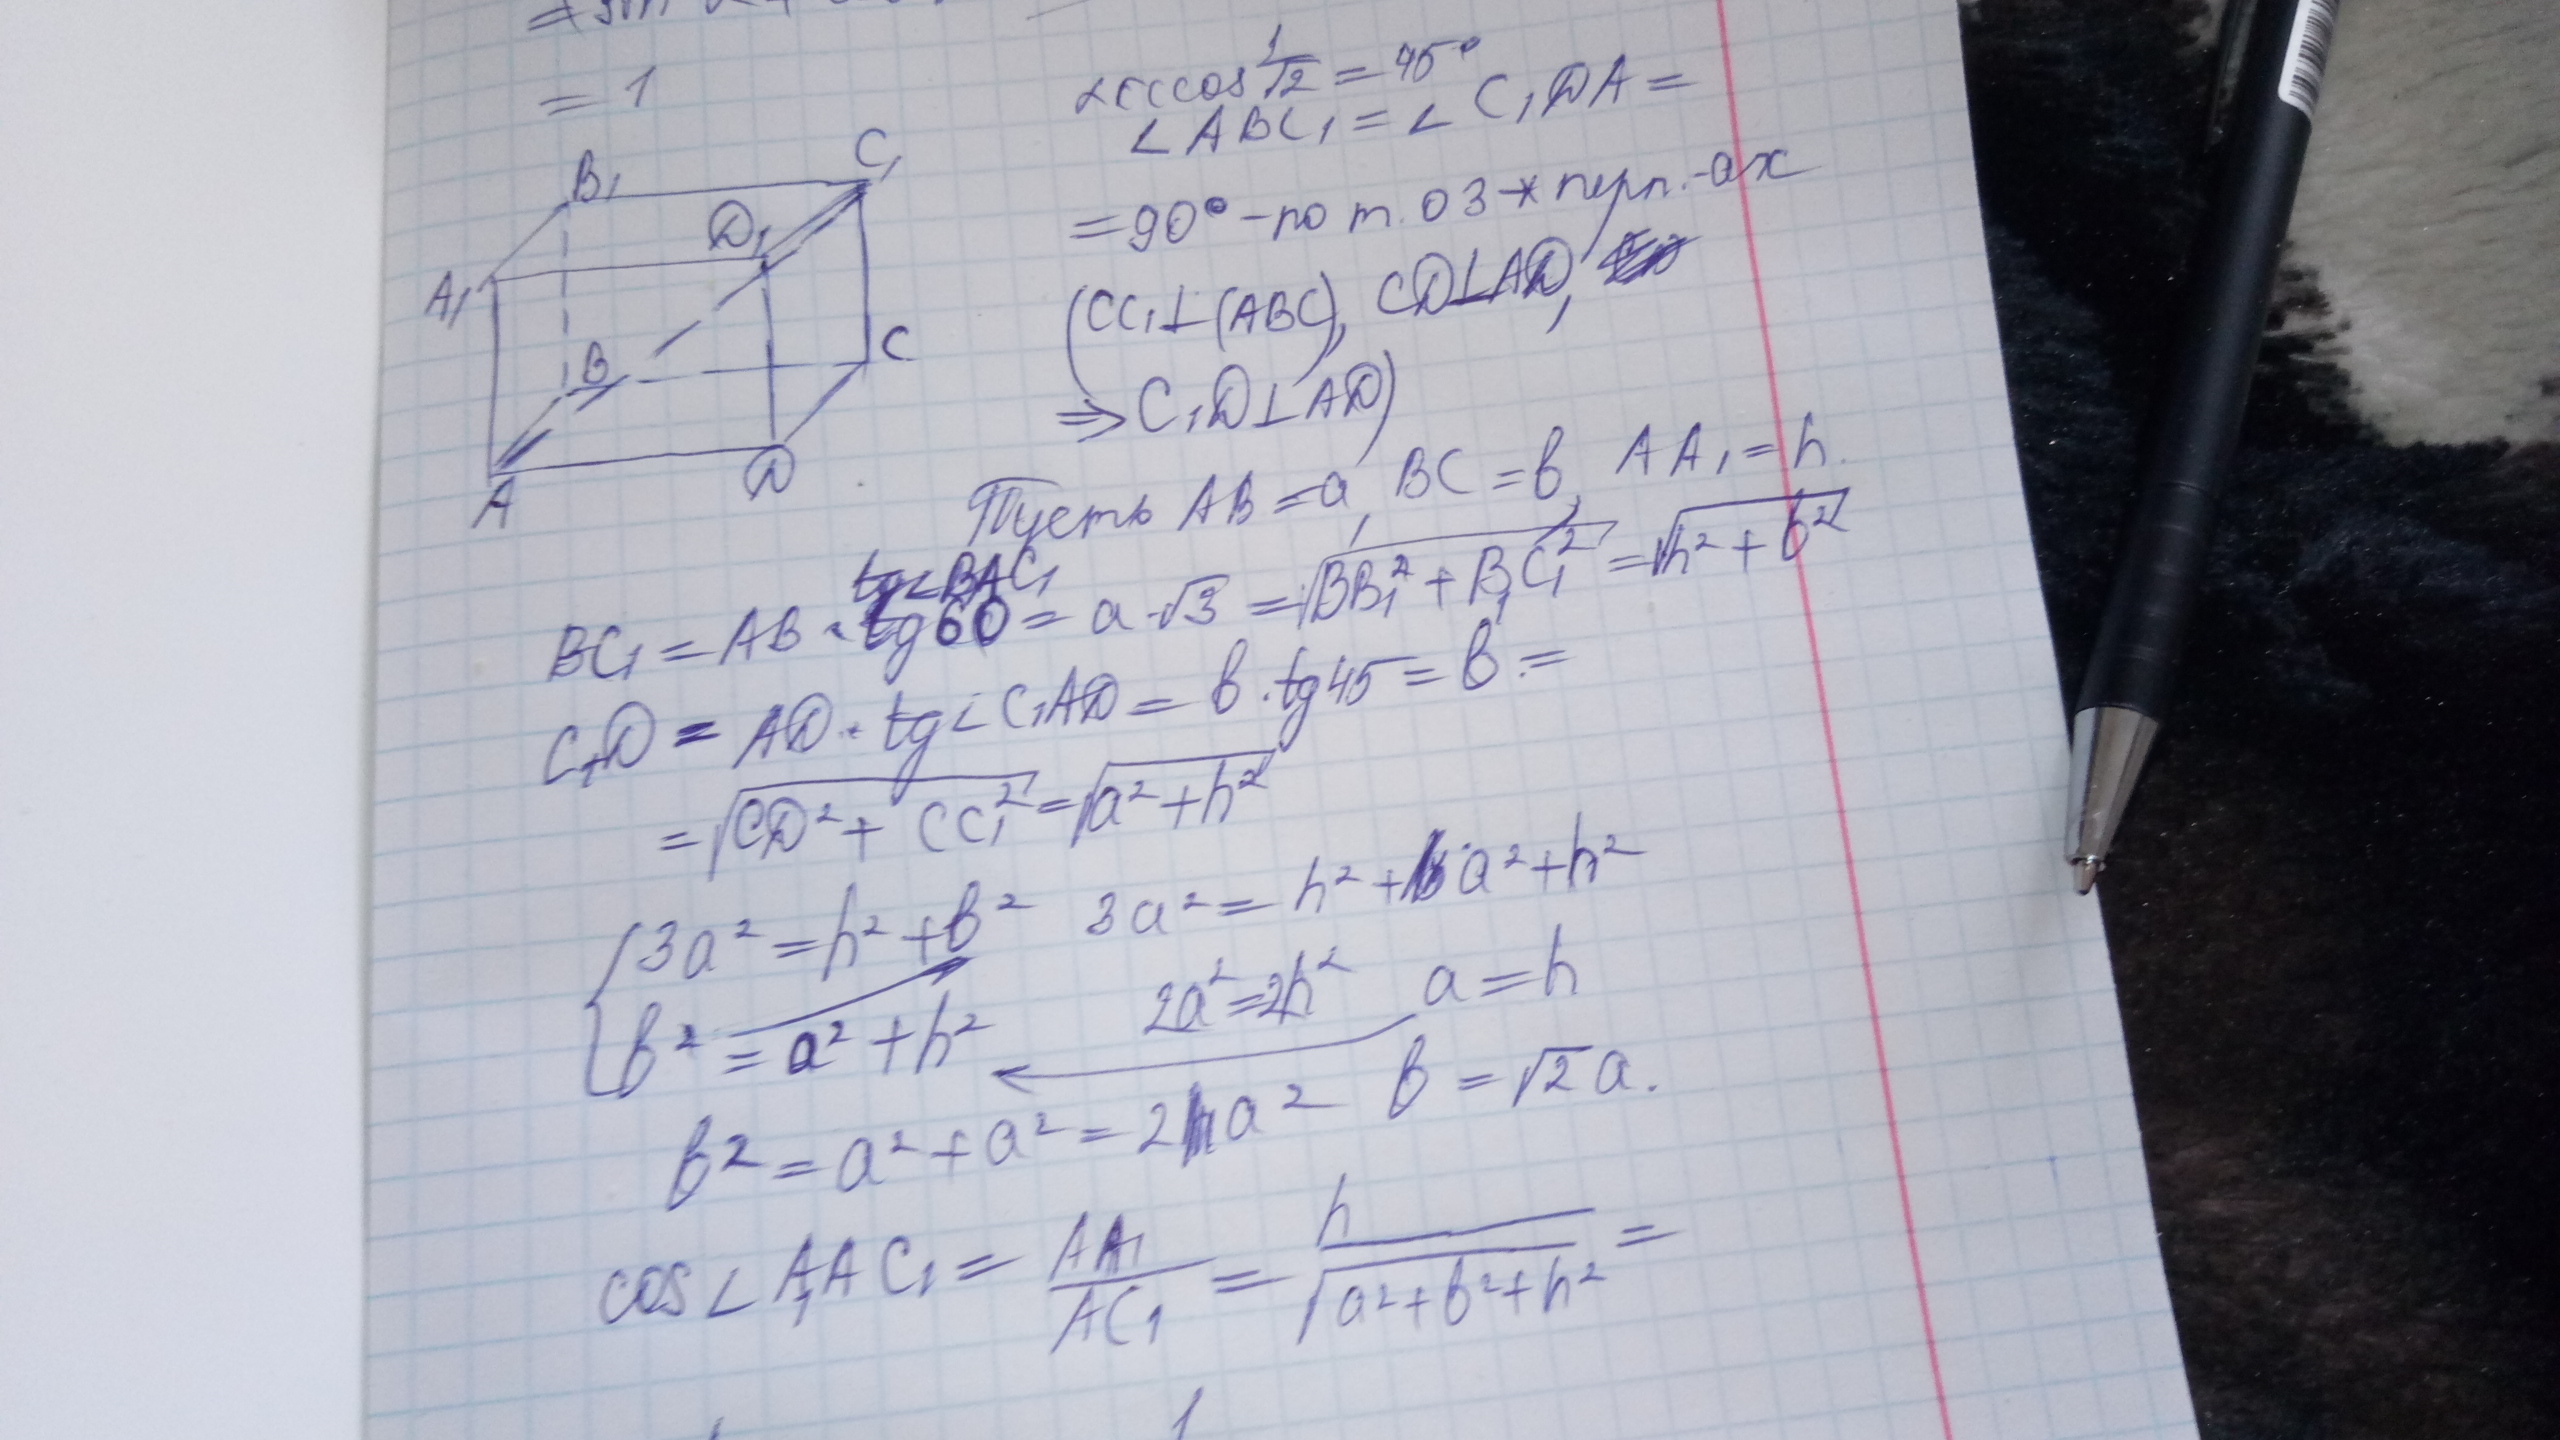 = 1
B₁ C₁
D₁
A₁
B C
A D
arccos 1/√2 = 45°
∠ABC₁ = ∠C₁DA =
= 90° - по т. о 3-х перп.-ах
(CC₁⊥(ABC), CD⊥AD,
⇒ C₁D⊥AD)
Пусть AB = a, BC = b, AA₁ = h.
tg∠BAC₁
BC₁ = AB · tg60 = a·√3 = √(BB₁² + B₁C₁²) = √(h² + b²)
C₁D = AD · tg∠C₁AD = b · tg45 = b =
= √(CD² + CC₁²) = √(a² + h²)
{3a² = h² + b² 3a² = h² + a² + h²
b² = a² + h² 2a² = 2h² a = h
b² = a² + a² = 2a² b = √2a.
cos∠A₁AC₁ = AA₁/AC₁ = h/√(a² + b² + h²) =
1